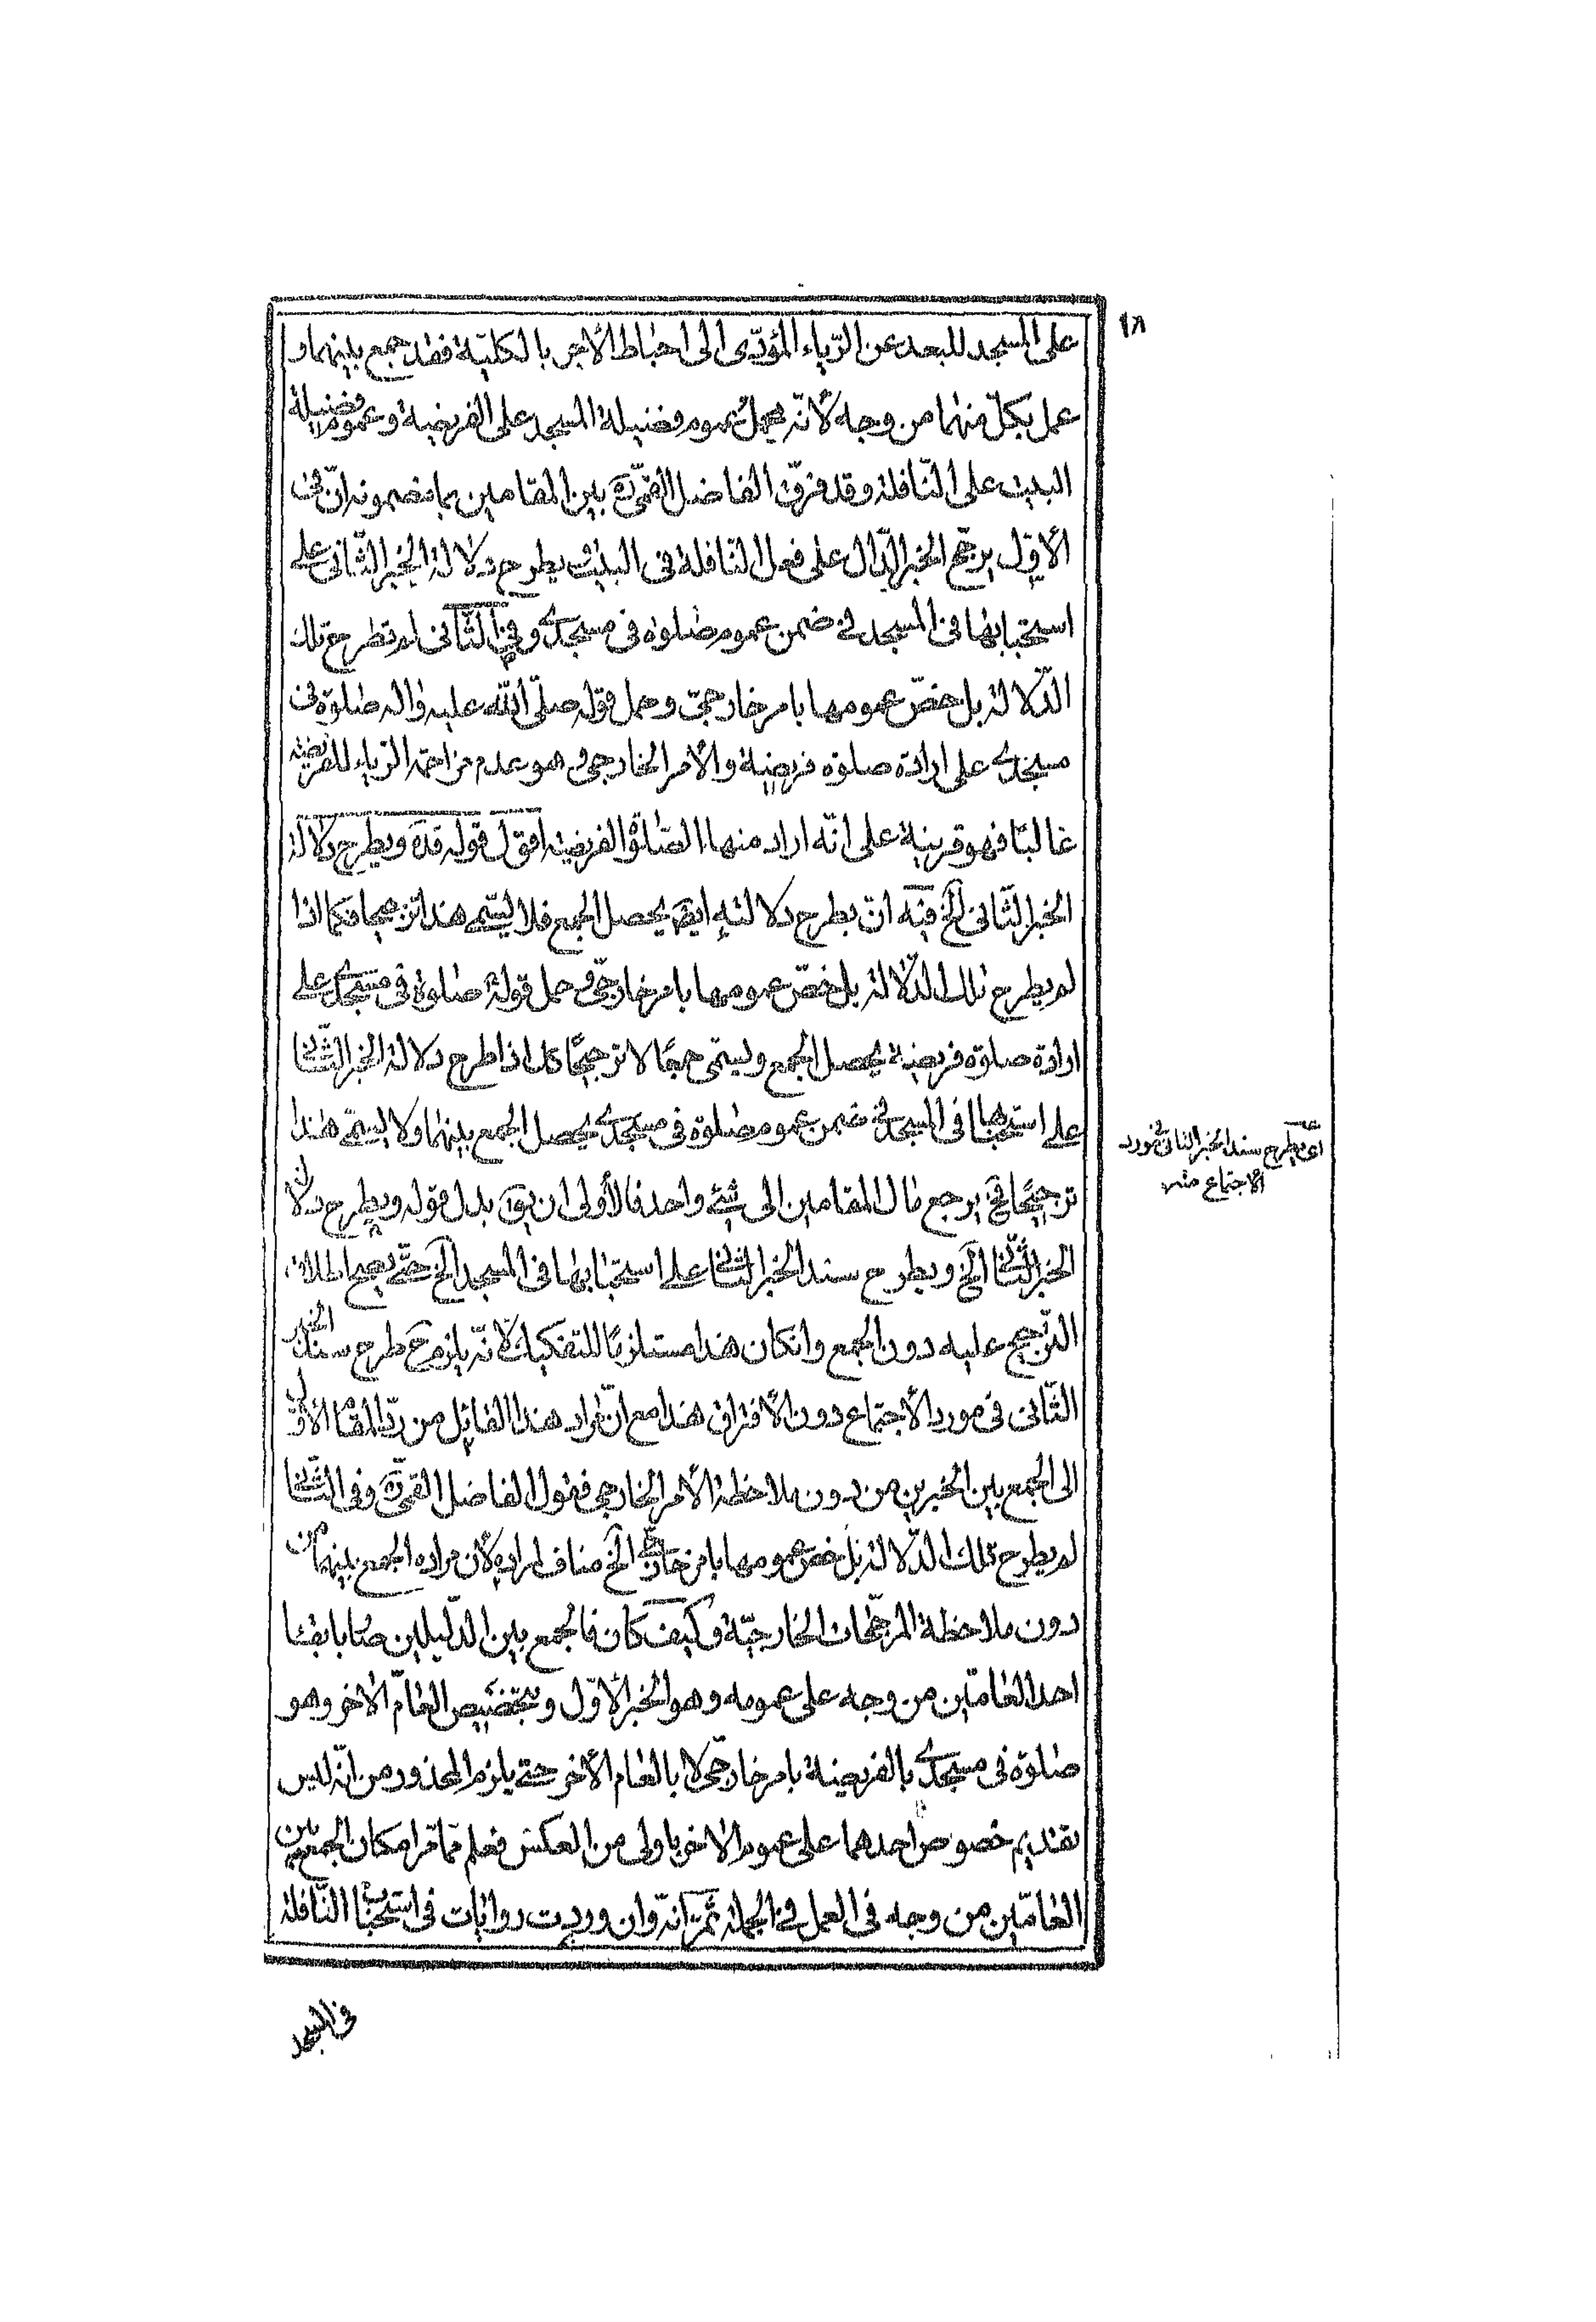 ١٨
على المسجد للبعد عن الرّياء المؤدّى الى احباط الأجر بالكليّة فقد جمع بينهما و
عمل بكلّ منهما من وجه لأنّه يحمل عموم فضيلة المسجد على الفريضة و عموم فضيلة
البيت على النّافلة و قد فرّق الفاضل القمّى ره بين المقامين بما مضمونه انّ فى
الأوّل يرجّح الخبر الدّال على فعل النافلة فى البيت و يطرح دلالة الخبر الثّانى على
استحبابها فى المسجد فى ضمن عموم صلوة فى مسجدى و فى الثّانى لم تطرح تلك
الدّلالة بل خصّ عمومها بامر خارجىّ و حمل قوله صلّى الله عليه واله صلوة فى
مسجدى على ارادة صلوة فريضة و الأمر الخارجى هو عدم مزاحمة الرّياء للفريضة
غالبًا فهو قرينة على انّه اراد منها الصّلوة الفريضة اقول قوله قدّه و يطرح دلالة
الخبر الثّانى الخ فيه انّ بطرح دلالته ايضًا يحصل الجمع فلا يسمّى هذا ترجيحا فكما اذا
لم يطرح تلك الدّلالة بل خصّ عمومها بامر خارجىّ و حمل قوله صلوة فى مسجدى على
ارادة صلوة فريضة يحصل الجمع و يسمّى جمعًا لا ترجيحًا كك اذا طرح دلالة الخبر الثّانى
على استحبابها فى المسجد فى ضمن عموم صلوة فى مسجدى يحصل الجمع بينهما و لا يسمّى هذا
ترجيحًا فح يرجع مال المقامين الى شىء واحد فالأولى ان يق بدل قوله و يطرح دلالة
الخبر الثّانى الخ و يطرح سند الخبر الثّانى على استحبابها فى المسجد الخ حتّى يصح اطلاق
التّرجيح عليه دون الجمع و انكان هذا مستلزمًا للتفكيك لأنّه يلزم ح طرح سند الخبر
الثّانى فى مورد الأجتماع دون الأفتراق هذا مع انّ مراد هذا القائل من ردّ المقام الأوّل
الى الجمع بين الخبرين من دون ملاحظة الأمر الخارجى فقول الفاضل القمّى ره و فى الثّانى
لم يطرح تلك الدّلالة بل خصّ عمومها بامر خارجىّ الخ مناف لمراده لأن مراده الجمع بينهما من
دون ملاحظة المرجّحات الخارجيّة و كيف كان فالجمع بين الدّليلين هنا بابقاء
احد العامّين من وجه على عمومه و هو الخبر الأوّل و بتخصيص العامّ الاخر و هو
صلوة فى مسجدى بالفريضة بامر خارجىّ لا بالعام الأخر حتى يلزم المحذور من انّه ليس
تقديم خصوص احدهما على عموم الاخر باولى من العكس فعلم ممّا مرّ امكان الجمع بين
العامّين من وجه فى العمل فى الجملة ثمّ انّه و ان وردت روايات فى استحباب النّافلة
اى يطرح سند الخبر الثانى فى مورد
الاجتماع منه
فى المسجد